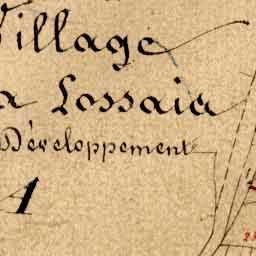 Village
a Lossaie
Développement
A